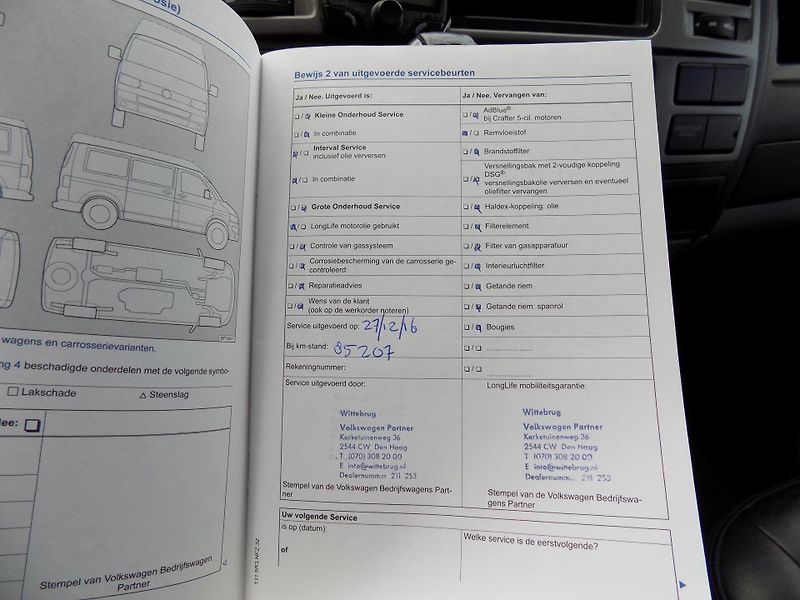 osie)
wagens en carrosserievarianten.
ng 4 beschadigde onderdelen met de volgende symbo-
Lakschade
△ Steenslag
lee:
Stempel van Volkswagen Bedrijfswagen
Partner
Bewijs 2 van uitgevoerde servicebeurten
Ja / Nee. Uitgevoerd is:
/ Kleine Onderhoud Service
/ In combinatie
/ Interval Service
inclusief olie verversen
/ In combinatie
/ Grote Onderhoud Service
/ LongLife motorolie gebruikt
/ Controle van gassysteem
/ Corrosiebescherming van de carrosserie ge-
controleerd
/ Reparatieadvies
/ Wens van de klant
(ook op de werkorder noteren)
Service uitgevoerd op: 27/12/16
Bij km-stand: 85207
Rekeningnummer:
Service uitgevoerd door:
Wittebrug
Volkswagen Partner
Kerketuinenweg 36
2544 CW Den Haag
T (070) 308 20 00
E info@wittebrug.nl
Dealernummer 211 253
Stempel van de Volkswagen Bedrijfswagens Part-
ner
Ja / Nee. Vervangen van:
/ AdBlue®
bij Crafter 5-cil. motoren
/ Remvloeistof
/ Brandstoffilter
Versnellingsbak met 2-voudige koppeling
/ DSG®:
versnellingsbakolie verversen en eventueel
oliefilter vervangen
/ Haldex-koppeling: olie
/ Filterelement
/ Filter van gasapparatuur
/ Interieurluchtfilter
/ Getande riem
/ Getande riem: spanrol
/ Bougies
/ ....................
/ ....................
LongLife mobiliteitsgarantie:
Wittebrug
Volkswagen Partner
Kerketuinenweg 36
2544 CW Den Haag
T (070) 308 20 00
E info@wittebrug.nl
Dealernummer 211 253
Stempel van de Volkswagen Bedrijfswa-
gens Partner
Uw volgende Service
is op (datum):
of
Welke service is de eerstvolgende?
131.5R3.NFZ.32